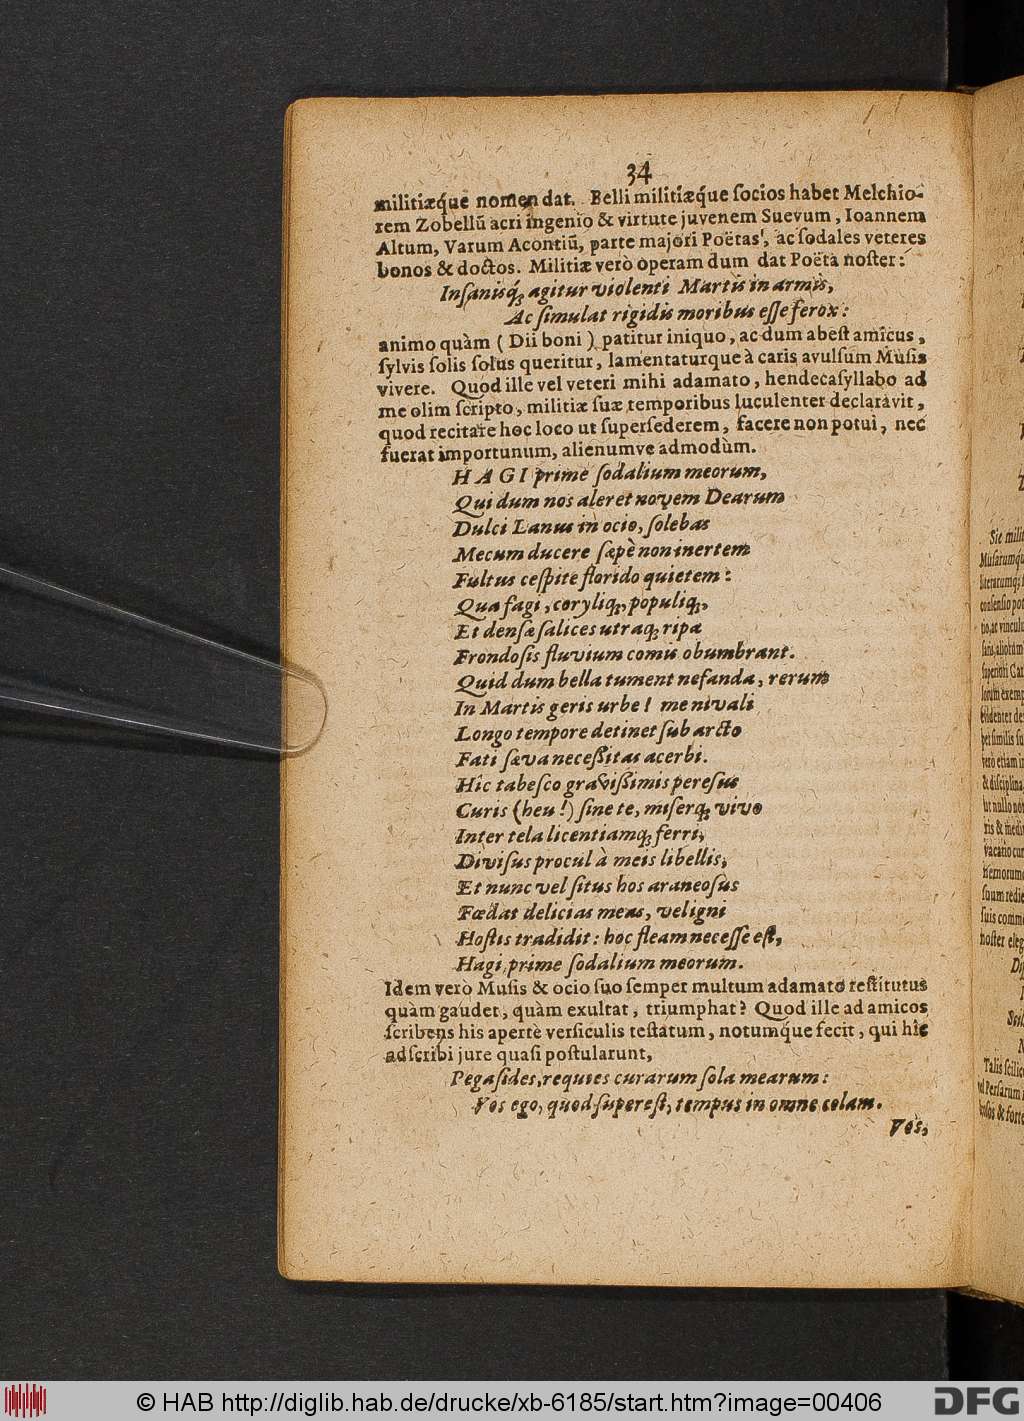 34
militiæq́ue nomen dat. Belli militiæq́ue ſocios habet Melchio-
rem Zobellũ acri ingenio & virtute juvenem Suevum, Ioannem
Altum, Varum Acontiũ, parte majori Poëtas, ac ſodales veteres
bonos & doctos. Militiæ verò operam dum dat Poëta noſter:
Inſanisq́; agitur violenti Martis in armis,
Ac ſimulat rigidis moribus eſſe ferox:
animo quàm (Dii boni) patitur iniquo, ac dum abeſt amicus,
ſylvis ſolis ſolus queritur, lamentaturque à caris avulſum Muſis
vivere. Quod ille vel veteri mihi adamato, hendecaſyllabo ad
me olim ſcripto, militiæ ſuæ temporibus luculenter declaravit,
quod recitare hoc loco ut ſuperſederem, facere non potui, nec
fuerat importunum, alienumve admodùm.
HAGI prime ſodalium meorum,
Qui dum nos aleret novem Dearum
Dulci Lanus in ocio, ſolebas
Mecum ducere ſæpè non inertem
Fultus ceſpite florido quietem:
Qua fagi, coryliq;, populiq;,
Et denſæ ſalices utraq; ripa
Frondoſis fluvium comis obumbrant.
Quid dum bella tument nefanda, rerum
In Martis geris urbe! me nivali
Longo tempore detinet ſub arcto
Fati ſæva neceßitas acerbi.
Hîc tabeſco gravißimis pereſus
Curis (heu!) ſine te, miſerq; vivo
Inter tela licentiamq; ferri,
Diviſus procul à meis libellis,
Et nunc vel ſitus hos araneoſùs
Fœdat delicias meas, vel igni
Hoſtis tradidit: hoc fleam neceſſe eſt,
Hagi prime ſodalium meorum.
Idem verò Muſis & ocio ſuo ſemper multum adamato reſtitutus
quàm gaudet, quàm exultat, triumphat? Quod ille ad amicos
ſcribens his apertè verſiculis teſtatum, notumq́ue fecit, qui hîc
adſcribi jure quaſi poſtularunt,
Pegaſides, requies curarum ſola mearum:
Vos ego, quod ſupereſt, tempus in omne colam.
Vos,
© HAB http://diglib.hab.de/drucke/xb-6185/start.htm?image=00406
DFG